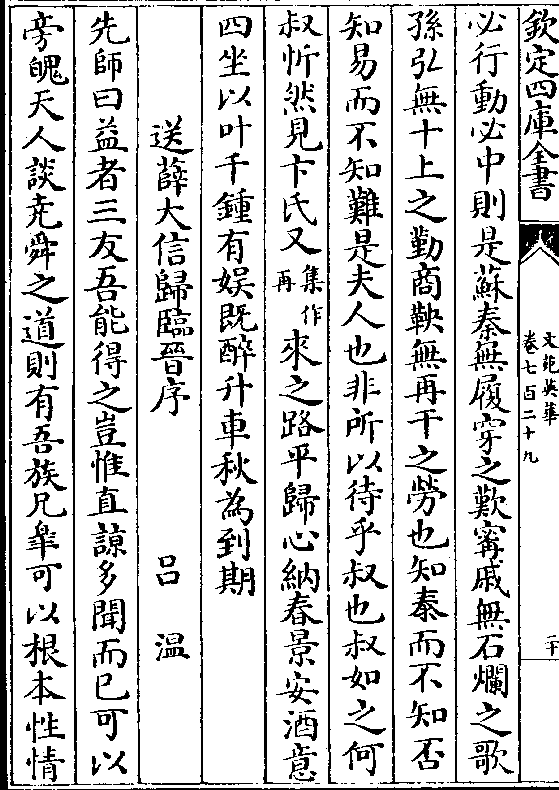 欽定四庫全書
文苑英華
卷七百二十九
二十
必行動必中則是蘇秦無履穿之歎甯戚無石爛之歌
孫弘無十上之勤商鞅無再干之勞也知泰而不知否
知易而不知難是夫人也非所以待乎叔也叔如之何
叔忻然見卞氏又集作再來之路平歸心納春景安酒意
四坐以叶千鍾有娱既醉升車秋為到期
送薛大信歸臨晉序 吕温
先師曰益者三友吾能得之豈惟直諒多聞而已可以
旁魄天人談堯舜之道則有吾族兄臯可以根本性情